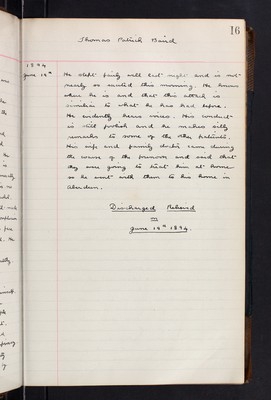 16
Thomas Patrick Baird
1894
June 14th He slept fairly well last night and is not
nearly so excited this morning. He knows
where he is and that this attack is
similar to what he has had before.
He evidently hears voices. His conduct
is still foolish and he makes silly
remarks to some of the other patients.
His wife and family doctor came during
the course of the forenoon and said that
they were going to treat him at home
so he went with them to his home in
Aberdeen.
Discharged Relieved
June 14th 1894.